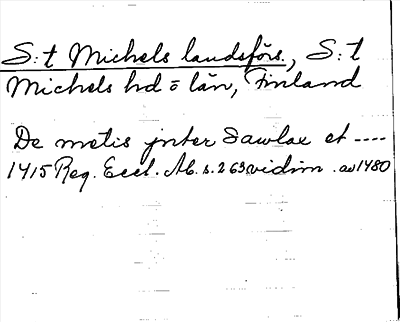 S:t Michels landsförs., S:t
Michels hd o län, Finland
De metis jnter Sawlax et ----
1415 Reg. Eccl. Ab. s. 263 vidim. av 1480